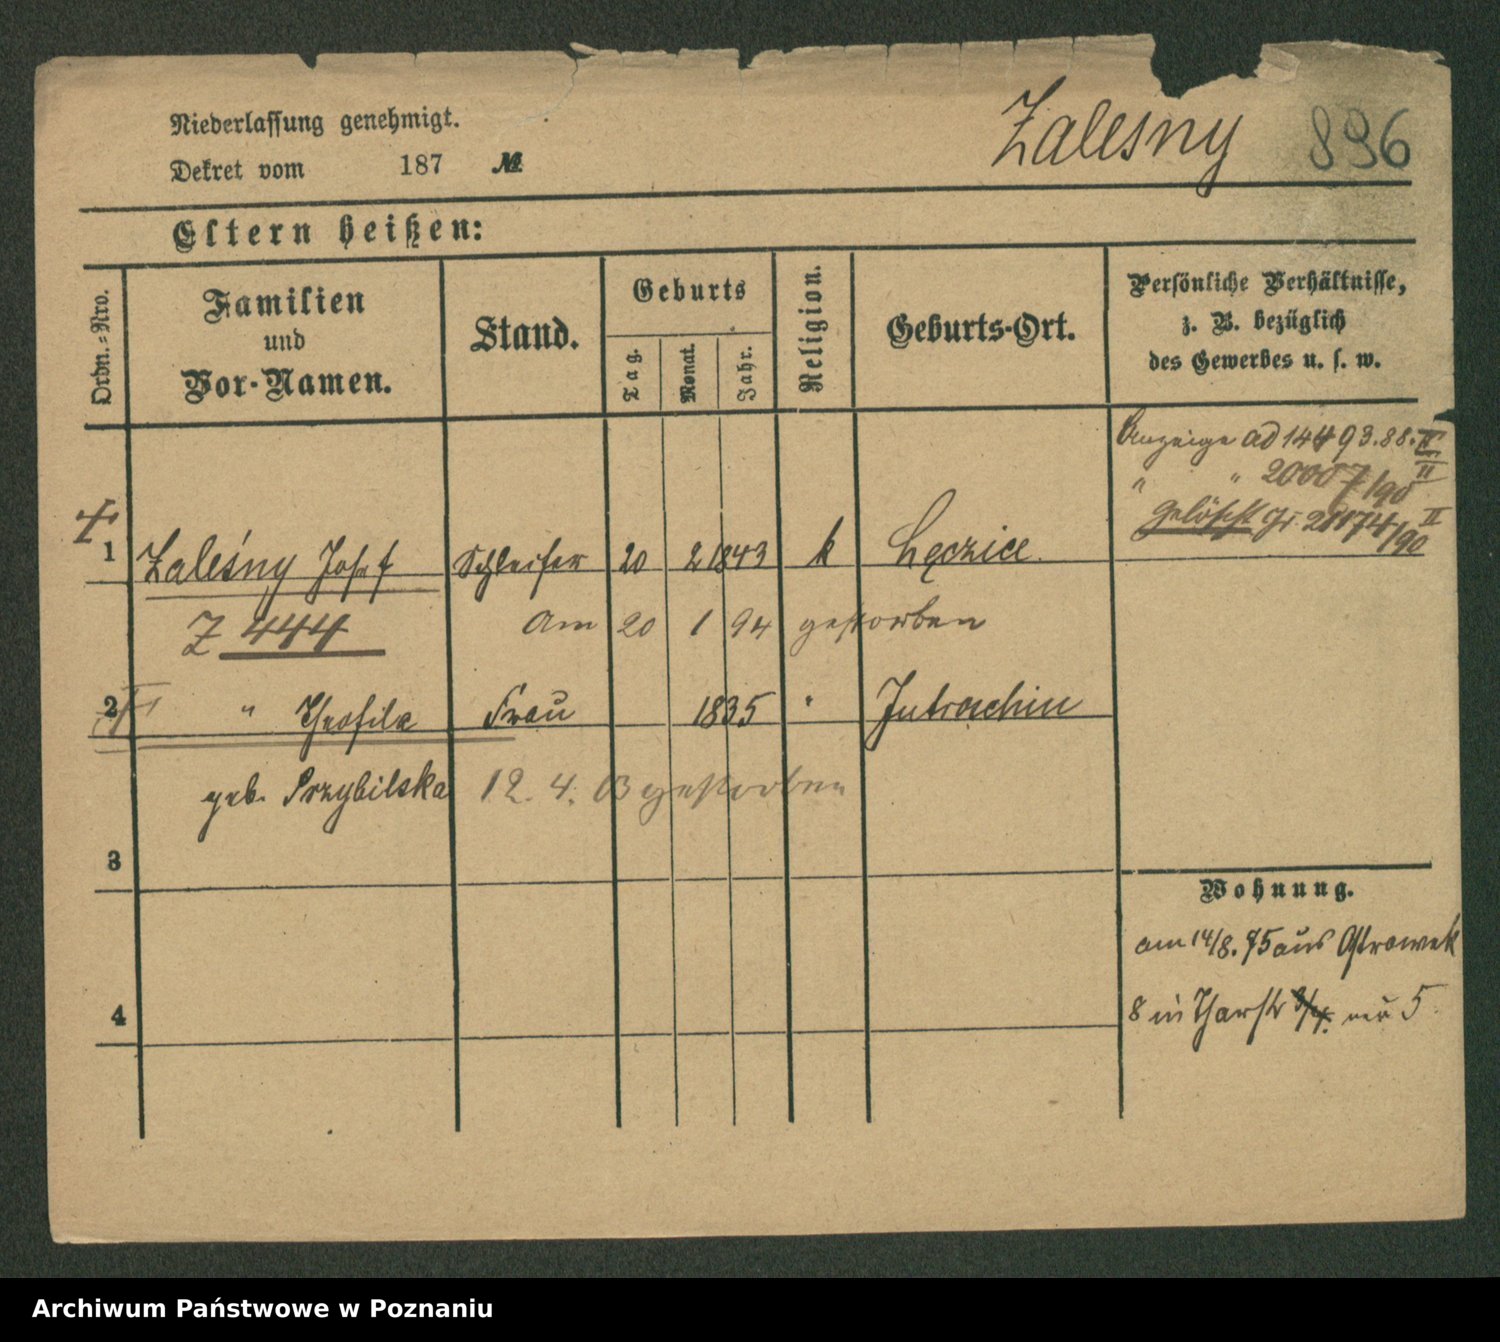 Niederlassung genehmigt.
Dekret vom 187 №
Zalesny 896
Eltern heißen:
Ordn.-Nro.
Familien
und
Vor-Namen.
Stand.
Geburts
Tag.
Monat.
Jahr.
Religion.
Geburts-Ort.
Persönliche Verhältnisse,
z. B. bezüglich
des Gewerbes u. s. w.
Anzeige ad 14493.88. II
" " 20007/90 II
gelöscht 21174/90 II
1 Zaleśny Josef Schleifer 20 2 1843 k Lęczice.
Z 444 am 20 1 94 gestorben
2 " Theofila Frau 1835 " Jutroschin
geb. Przybilska 12. 4. 03 gestorben
3
4
Wohnung.
am 14/8. 75 aus Ostrowek
8 in 5